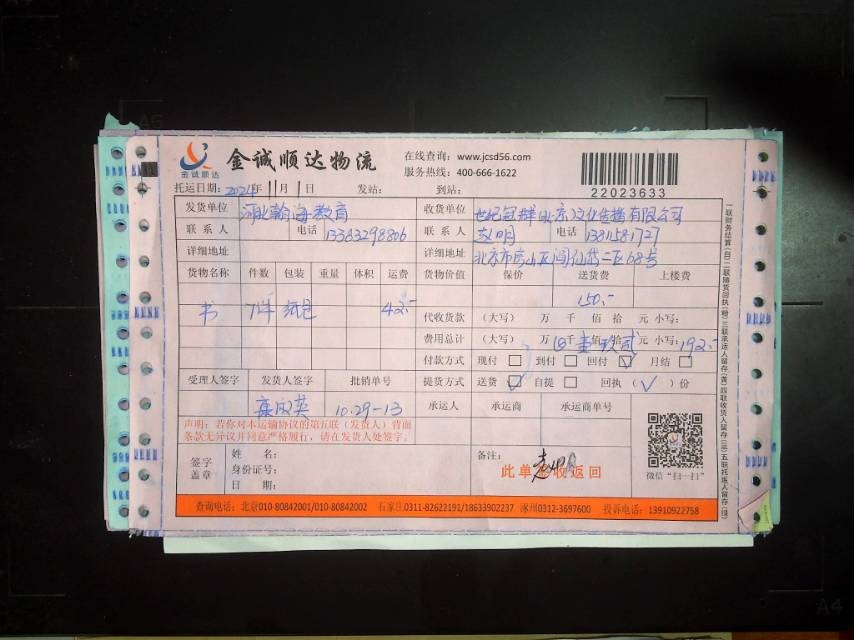 金诚顺达
金诚顺达物流
在线查询：www.jcsd56.com
服务热线：400-666-1622
22023633
托运日期：2024年11月1日 发站： 到站：
发货单位 河北瀚海教育 收货单位 世纪冠群(北京)文化传播有限公司
联系人 电话 13383298806 联系人 电话 1381581727
详细地址 详细地址 北京市房山区阎仙垡二区68号
货物名称 件数 包装 重量 体积 运费 货物价值 保价 送货费 上楼费
150.-
书 7件 纸包 42.- 代收货款 (大写) 万 千 佰 拾 元 小写：
费用总计 (大写) 万 千 壹佰 玖拾 贰元 小写：192.-
付款方式 现付 到付 回付 √ 月结
受理人签字 发货人签字 批销单号 提货方式 送货 √ 自提 回执（√）份
10.29-13 承运人 承运商 承运商单号
声明：若你对本运输协议的第五联（发货人）背面
条款无异议并同意严格履行，请在发货人处签字。
签字
盖章
姓名：
身份证号：
日期：
备注：
此单签收返回
微信“扫一扫”
查询电话：北京010-80842001/010-80842002 石家庄0311-82622191/18633902237 涿州0312-3697600 投诉电话：13910922758
一联财务结算(白)二联随货回执(粉)三联承运人留存(黄)四联收货人留存(蓝)五联托运人留存(绿)
A5
A4